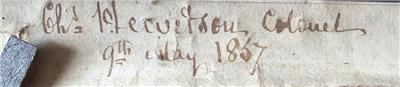 Chs. Hewetson Colonel
9th May 1857